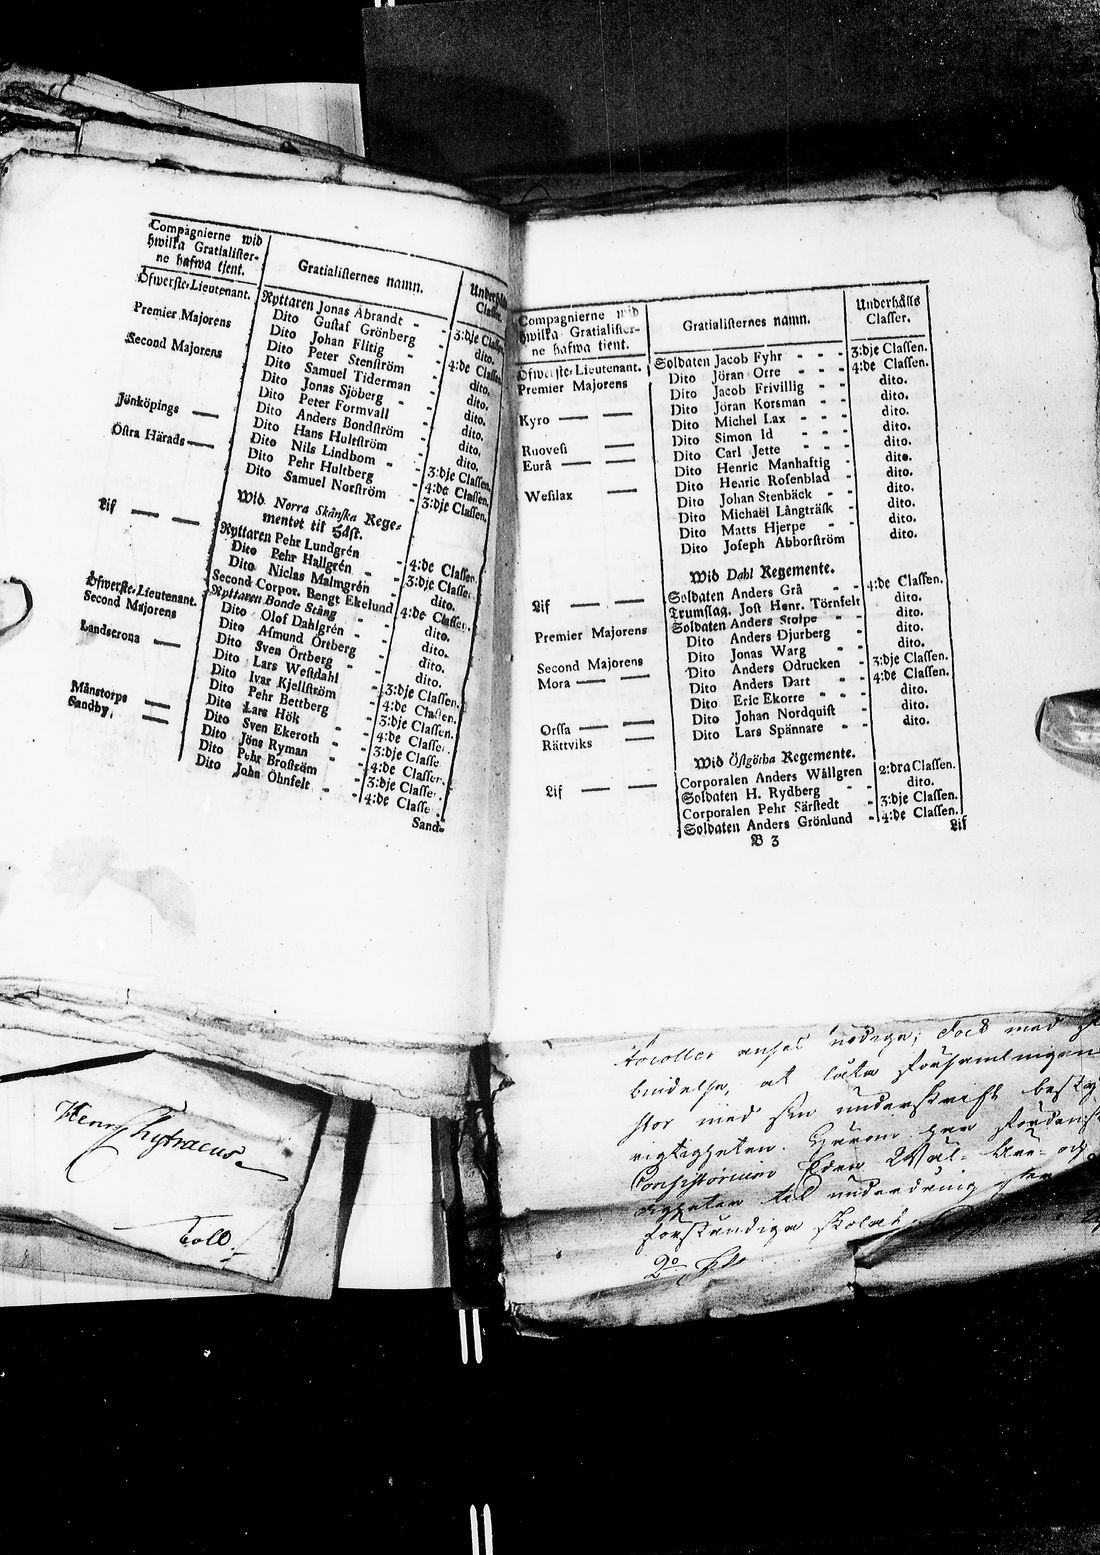 Compagnierne wid
hwilka Gratialister-
ne hafwa tjent.
Gratialisternes namn.
Underhålls
Classer.
Öfwerste-Lieutenant. Ryttaren Jonas Abrandt - - 3:dje Classen
Dito Gustaf Grönberg - dito.
Premier Majorens Dito Johan Flitig - 4:de Classen
Dito Peter Stenström - dito.
Second Majorens Dito Samuel Tiderman - dito.
Dito Jonas Sjöberg - - dito.
Dito Peter Formvall - dito.
Dito Anders Bondström - dito.
Jönköpings — Dito Hans Hultström - dito.
Dito Nils Lindbom - - 3:dje Classen.
Östra Härads — Dito Pehr Hultberg - 4:de Classen.
Dito Samuel Norström - 3:dje Classen.
Wid Norra Skånska Rege-
mentet til Häst.
Lif — — Ryttaren Pehr Lundgrén - 4:de Classen.
Dito Pehr Hallgrén - - 3:dje Classe
Dito Niclas Malmgrén - dito.
Second Corpor. Bengt Ekelund 4:de Classen.
Öfwerste-Lieutenant. Ryttaren Bonde Stång - - dito.
Second Majorens Dito Olof Dahlgrén - - dito.
Dito Asmund Örtberg - dito.
Dito Sven Örtberg - - dito.
Landscrona — Dito Lars Westdahl - 3:dje Classen.
Dito Ivar Kjellström - 4:de Classen.
Dito Pehr Bettberg - 3:dje Classen.
Dito Lars Hök - - 4:de Classe
Månstorps — Dito Sven Ekeroth - - 3:dje Classe
Sandby, — Dito Jöns Ryman - - 4:de Classen.
Dito Pehr Broström - 3:dje Classe
Dito John Öhnfelt - - 4:de Classe
Sand-
Compagnierne wid
hwilka Gratialister-
ne hafwa tient.
Gratialisternes namn.
Underhålls
Classer.
Öfwerste-Lieutenant. Soldaten Jacob Fyhr - - - 3:dje Classen.
Premier Majorens Dito Jöran Orre - - - 4:de Classen.
Dito Jacob Frivillig - - dito.
Kyro — — Dito Jöran Korsman - - dito.
Dito Michel Lax - - - dito.
Ruovesi — Dito Simon Id - - - dito.
Eurå — — Dito Carl Jette - - - dito.
Dito Henric Manhaftig - dito.
Wesilax — Dito Henric Rosenblad - dito.
Dito Johan Stenbäck - - dito.
Dito Michaël Långträsk - dito.
Dito Matts Hjerpe - - dito.
Dito Joseph Abborström dito.
Wid Dahl Regemente.
Lif — — Soldaten Anders Grå - - 4:de Classen.
Trumslag. Jost Henr. Törnfelt dito.
Premier Majorens Soldaten Anders Stolpe - - dito.
Dito Anders Djurberg - dito.
Second Majorens Dito Jonas Warg - - dito.
Mora — — Dito Anders Odrucken - 3:dje Classen.
Dito Anders Dart - - 4:de Classen.
Dito Eric Ekorre - - - dito.
Orssa — — Dito Johan Nordquist - dito.
Rättviks — Dito Lars Spännare - - dito.
Wid Östgötha Regemente.
Lif — — Corporalen Anders Wållgren 2:dra Classen.
Soldaten H. Rydberg - - dito.
Corporalen Pehr Särstedt - 3:dje Classen.
Soldaten Anders Grönlund - 4:de Classen.
B 3
Lif
anses nödige; dock med
at låta Församlingen
med sin underskrift
rigtigheten.
Consistorium
til underdånig
förständiga
2o
Henr Chytraeus
Coll.